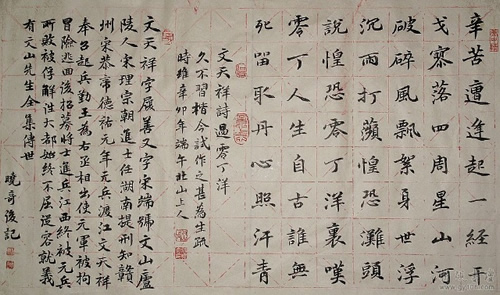 辛苦遭逢起一経干
戈寥落四周星山河
破碎風飄絮身世浮
沉雨打蘋惶恐灘頭
說惶恐零丁洋裏嘆
零丁人生自古誰無
死留取丹心照汗青
文天祥詩過零丁洋
久不習楷今試作之甚為生疏
時維辛卯年端午北山上人
文天祥字履善又字宋瑞號文山廬
陵人宋理宗朝進士任湖南提刑知贛
州宋恭帝德祐元年元兵渡江文天祥
奉召起兵勤王為右丞相出使元軍被拘
冒險逃回後招募將士進兵江西終被元兵
所敗被俘解往大都始終不屈從容就義
有文山先生全集傳世
曉哥後記